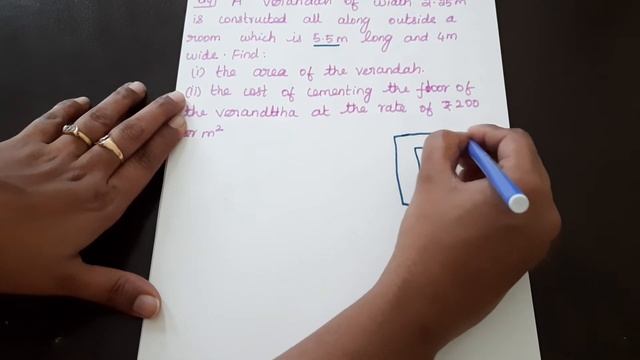 A verandah of width 2.25m
is constructed all along outside a
room which is 5.5m long and 4m
wide. Find:
(i) the area of the verandah.
(ii) the cost of cementing the floor of
the verandtha at the rate of ₹200
m²